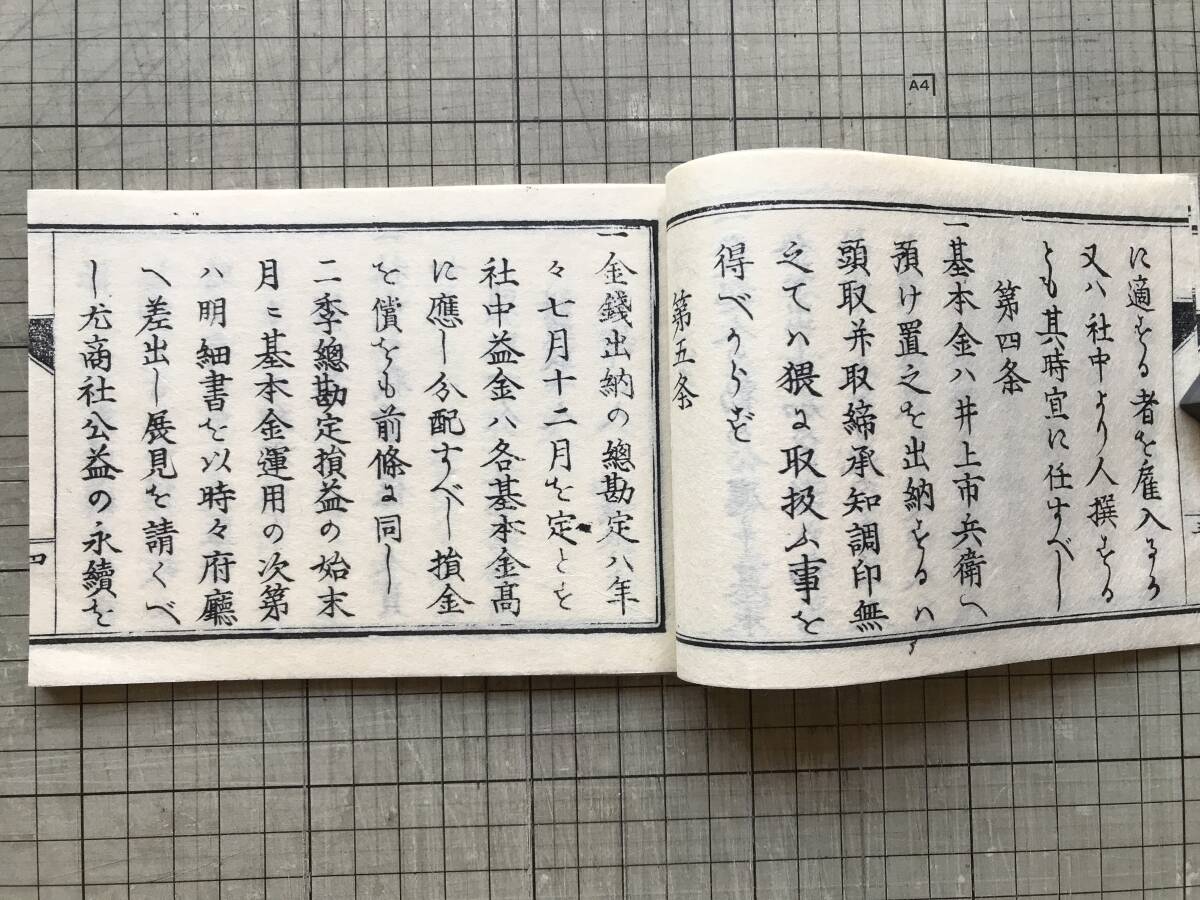 に適する者を雇入るゝ
又ハ社中より人撰する
とも其時宜に任すべし
第四条
一基本金ハ井上市兵衛へ
預け置之を出納するハ
頭取并取締承知調印無
之てハ猥に取扱ふ事を
得べからず
第五条
一金錢出納の總勘定ハ年
々七月十二月を定とす
社中益金ハ各基本金髙
に應し分配すべし損金
を償をも前條に同し
二季總勘定損益の始末
月ニ基本金運用の次第
ハ明細書を以時々府廳
へ差出し展見を請くべ
し尤商社公益の永續を
四
A4